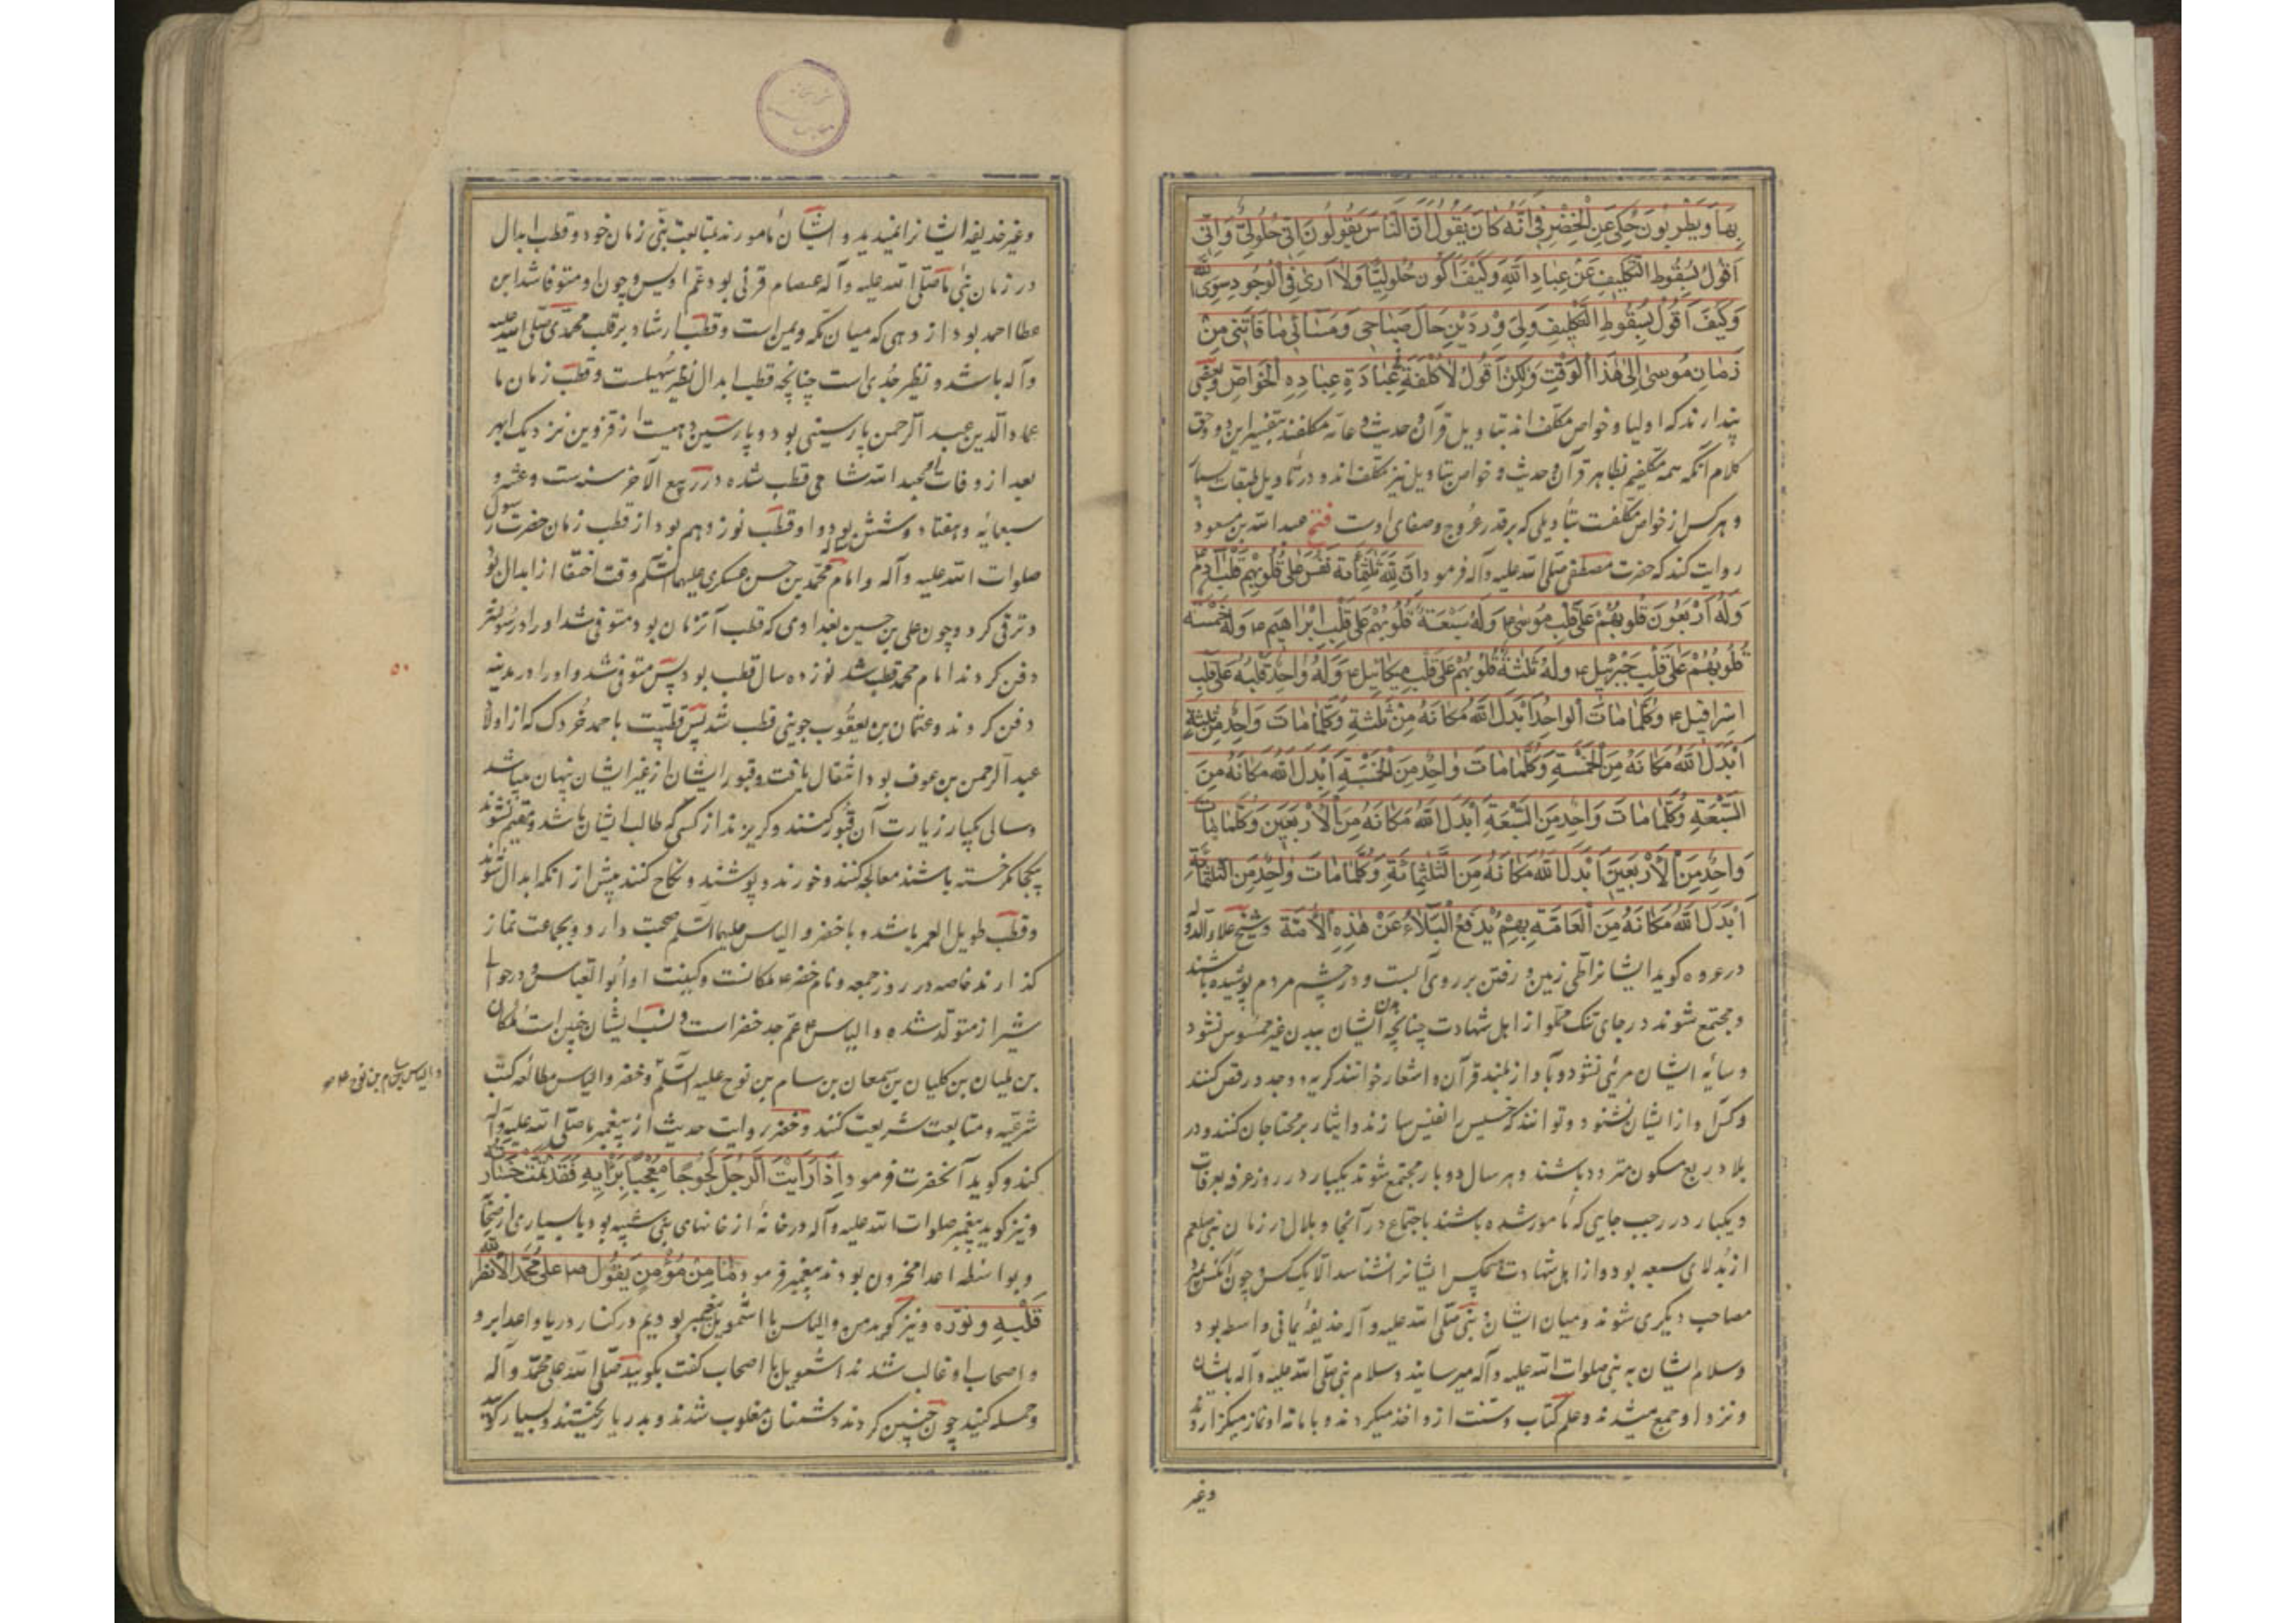 بِهَا وَيَطْرَبُونَ حُكِيَ عَنِ الْخِضْرِ فِي أَنَّهُ كَانَ يَقُولُ اَنَّ النَّاسَ يَقُولُونَ اِنِّي حُلُولِيٌّ وَاِنِّي
اَقُولُ بِسُقُوطِ التَّكْلِيفِ عَنْ عِبَادِ اللهِ وَكَيْفَ اَكُونُ حُلُولِيًّا وَلَا اَرَى فِي الْوُجُودِ سِوَى اللهِ
وَكَيْفَ اَقُولُ بِسُقُوطِ التَّكْلِيفِ وَلِيَ وِرْدَيْنِ حَالَ صَبَاحِي وَمَسَائِي مَا فَاتَنِي مِنْ
زَمَانِ مُوسَى اِلَى هَذَا الْوَقْتِ وَلَكِنْ اَقُولُ لَا كُلْفَةَ فِي عِبَادَةِ عِبَادِهِ الْخَوَاصِّ وبعضى
پندارند که اولیا و خواص مکلف اند بتاویل قرآن و حدیث و عامه مکلفند بتفسیر این دو و حق
کلام آنکه همه مکلفیم بظاهر قرآن و حدیث و خواص بتاویل نیز مکلف اند و در تاویل طبقات بسیار
و هر کس از خواص مکلفست بتأویلی که بر قدر عروج و صفای اوست فتح عبد الله بن مسعود
روایت کند که حضرت مصطفی صلی الله علیه وآله فرمود اِنَّ لِلّٰهِ ثَلَثَمِائَةِ نَفْسٍ عَلَى قُلُوبُهُمْ قَلْبِ آدَمَ
وَلَهُ اَرْبَعُونَ قُلُوبُهُمْ عَلَى قَلْبِ مُوسَى ع وَلَهُ سَبْعَةٌ قُلُوبُهُمْ عَلَى قَلْبِ اِبْرَاهِيمَ ع وَلَهُ خَمْسَةٌ
قُلُوبُهُمْ عَلَى قَلْبِ جَبْرَئِيلَ ع وَلَهُ ثَلَثَةٌ قُلُوبُهُمْ عَلَى قَلْبِ مِيكَائِيلَ ع وَلَهُ وَاحِدٌ قَلْبُهُ عَلَى قَلْبِ
اِسْرَافِيلَ ع وَكُلَّمَا مَاتَ الْوَاحِدُ اَبْدَلَ اللهُ مَكَانَهُ مِنْ ثَلَثَةٍ وَكُلَّمَا مَاتَ وَاحِدٌ مِنْ ثَلَثَةٍ
اَبْدَلَ اللهُ مَكَانَهُ مِنَ الْخَمْسَةِ وَكُلَّمَا مَاتَ وَاحِدٌ مِنَ الْخَمْسَةِ اَبْدَلَ اللهُ مَكَانَهُ مِنَ
السَّبْعَةِ وَكُلَّمَا مَاتَ وَاحِدٌ مِنَ السَّبْعَةِ اَبْدَلَ اللهُ مَكَانَهُ مِنَ الْاَرْبَعِينَ وَكُلَّمَا مَاتَ
وَاحِدٌ مِنَ الْاَرْبَعِينَ اَبْدَلَ اللهُ مَكَانَهُ مِنَ الثَّلَثِمِائَةِ وَكُلَّمَا مَاتَ وَاحِدٌ مِنَ الثَّلَثِمِائَةِ
اَبْدَلَ اللهُ مَكَانَهُ مِنَ الْعَامَّةِ بِهِمْ يُدْفَعُ الْبَلَاءُ عَنْ هٰذِهِ الْاُمَّةِ و شیخ علاء الدوله
در عروه گوید ایشانرا طی زمین و رفتن بر روی آبست و در چشم مردم پوشیده باشند
و مجتمع شوند در جای تنگ مملو از اهل شهادت چنانچه بدن ایشان ببدن غیر محسوس نشود
و سایه ایشان مرئی نشود و بآواز بلند قرآن و اشعار خوانند و گریه و وجد و رقص کنند
و کس آواز ایشان نشنود و توانند که خسیس را نفیس سازند و ایثار بر محتاجان کنند و در
بلاد ربع مسکون متردد باشند و هر سال دو بار مجتمع شوند یکبار در روز عرفه بعرفات
و یکبار در رجب جایی که مأمور شده باشند باجتماع در آنجا و بلال در زمان نبی صلعم
از بدلای سبعه بود و از اهل شهادت هیچکس ایشانرا نشناسد الا یک کس و چون آنکس بمیرد
مصاحب دیگری شوند و میان ایشان و نبی صلی الله علیه وآله حذیفه یمانی واسطه بود
و سلام ایشان به نبی صلوات الله علیه وآله میرسانید و سلام نبی صلی الله علیه وآله بایشان
و نزد او جمع میشدند و علم کتاب و سنت ازو اخذ میکردند و با ما نه او نماز میگزاردند
وغیر
وغیر حذیفه ایشانرا نمیدید و ایشان مامورند بمتابعت نبی زمان خود و قطب ابدال
در زمان نبی ما صلی الله علیه وآله عصام قرنی بود عم اویس و چون او متوفا شد ابن
عطا احمد بود از دهی که میان مکه و یمن است و قطب ارشاد بر قلب محمدی صلی الله علیه
وآله باشد و نظیر جدی است چنانچه قطب ابدال نظیر سهیلست و قطب زمان ما
عماد الدین عبد الرحمن پارسینی بود و پارسین دهیست از قزوین نزدیک ابهر
بعد از وفات عبد الله شامی قطب شده در ربیع الآخر سنه ست و عشر و
سبعمائه و هفتاد و شش ساله بود و او قطب نوزدهم بود از قطب زمان حضرت رسول
صلوات الله علیه وآله و امام محمد بن حسن عسکری علیهما السلم وقت اختفا از ابدال بود
و ترقی کرد و چون علی بن حسین بغدادی که قطب آنزمان بود متوفی شد او را در شونیز
دفن کردند امام محمد قطب شد نوزده سال قطب بود پس متوفی شد و او را در مدینه
دفن کردند و عثمان بن یعقوب جوینی قطب شد پس قطبیت با احمد خردک که از اولاد
عبد الرحمن بن عوف بود انتقال یافت و قبور ایشان از غیر ایشان پنهان میباشد
و سالی یکبار زیارت آن قبور کنند و گریزند از کسی که طالب ایشان باشد و مقیم نشوند
بیکجا مگر خسته باشند معالجه کنند و خورند و پوشند و نکاح کنند پیش از آنکه ابدال شوند
و قطب طویل العمر باشد و با خضر و الیاس علیهما السلم صحبت دارد و بجماعت نماز
گذارند خاصه در روز جمعه و نام خضر ع ملکانست و کنیت او ابو العباس و در حوالی
شیراز متولد شده و الیاس ع عم جد خضر است و نسب ایشان چنین است ملکان
بن بلیان بن کلیان بن سمعان بن سام بن نوح علیه السلم و خضر و الیاس مطالعه کتب
و الیاس بن سام بن نوح ع م
شرعیه و متابعت شریعت کنند و خضر روایت حدیث از پیغمبر ما صلی الله علیه وآله
کند و گوید آنحضرت فرمود اِذَا رَاَيْتَ الرَّجُلَ لَجُوجًا مُعْجِبًا بِرَاْيِهِ فَقَدْ تَمَّتْ خَسَارَتُهُ
و نیز گوید پیغمبر صلوات الله علیه وآله در خانهٔ از خانهای بنی شیبه بود با بسیاری از صحابه
و بواسطه اعدا محزون بودند پیغمبر فرمود مَا مِنْ مُؤْمِنٍ يَقُولُ ص عَلَى مُحَمَّدٍ اِلَّا نَضَّرَ اللهُ
قَلْبَهُ وَنَوَّرَهُ و نیز گوید من و الیاس با اشمویل پیغمبر بودیم در کنار دریا و اعدا برو
و اصحاب او غالب شدند اشمویل با اصحاب گفت بگویید صلی الله علی محمد وآله
و حمله کنید چون چنین کردند دشمنان مغلوب شدند و بدریا ریختند و بسیار گوید
۵۰